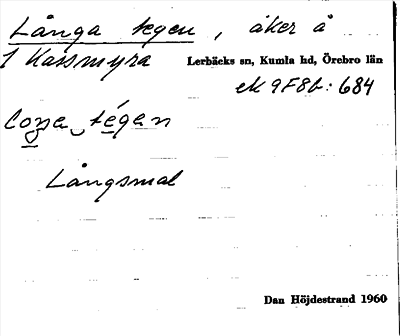 Långa tegen, åker å
1 Kassmyra Lerbäcks sn, Kumla hd, Örebro län
ek 9F8b: 684
Långsmal
Dan Höjdestrand 1960